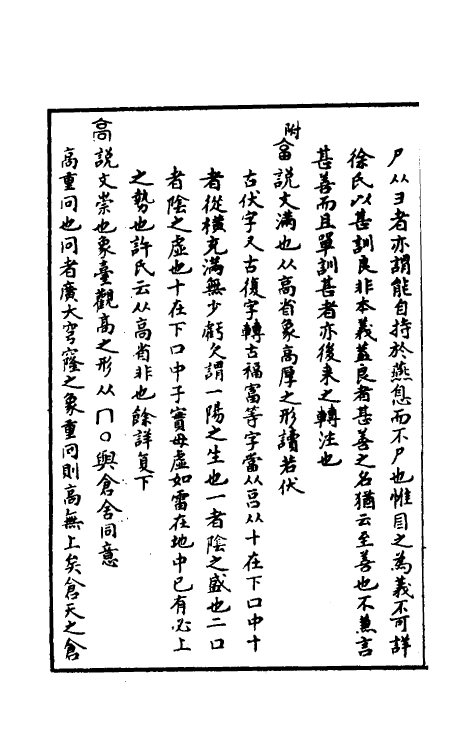 尸从彐者亦謂能自持於燕息而不尸也惟目之為義不可詳
徐氏以甚訓良非本義蓋良者甚善之名猶云至善也不兼言
甚善而且單訓甚者亦後來之轉注也
附畗說文滿也从高省象高厚之形讀若伏
古伏字又古復字轉古福富等字當从吕从十在下口中十
者從橫充滿無少虧欠謂一陽之生也一者陰之盛也二口
者陰之虛也十在下口中子實母虛如雷在地中已有必上
之勢也許氏云从高省非也餘詳㫗下
高說文崇也象臺觀高之形从冂口與倉舍同意
高重冋也冋者廣大穹窿之象重冋則高無上矣倉天之倉